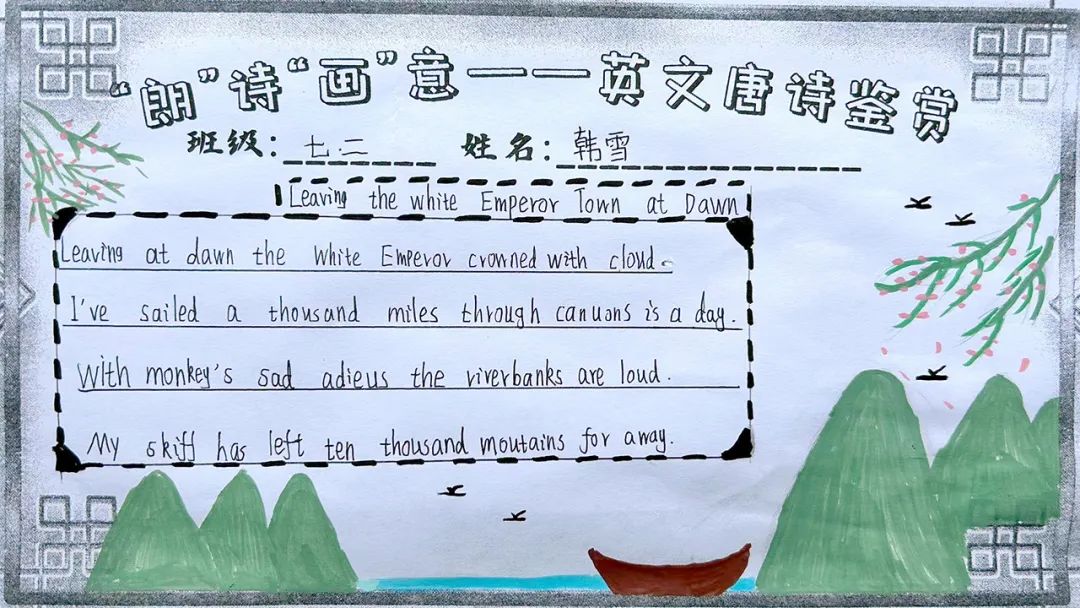 “朗”诗“画”意——英文唐诗鉴赏
班级：七.二 姓名：韩雪
Leaving the white Emperor Town at Dawn
Leaving at dawn the White Emperor crowned with cloud.
I've sailed a thousand miles through canuons is a day.
With monkey's sad adieus the riverbanks are loud.
My skiff has left ten thousand moutains for away.